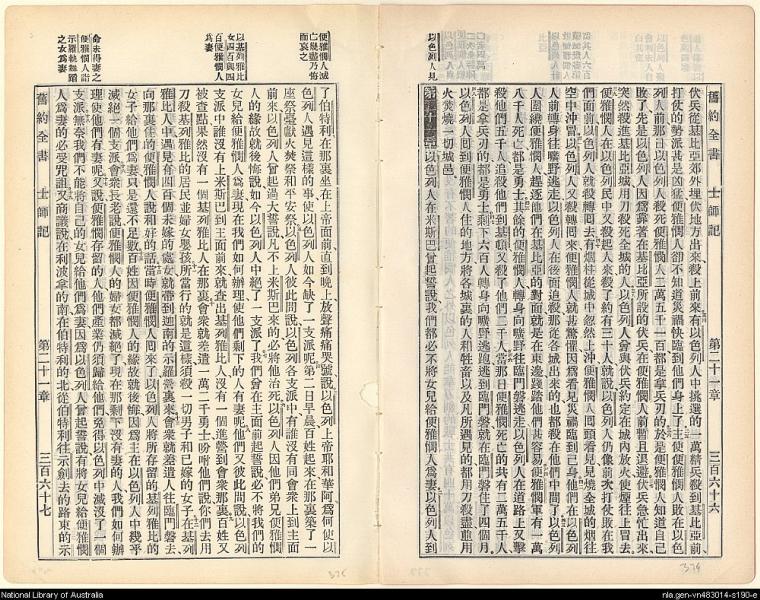 舊約全書 士師記 第二十一章 三百六十六
伏兵從基比亞郊外埋伏地方出來殺上前來有以色列人中挑選的一萬精兵殺到基比亞前
打仗的勢派甚是凶猛便雅憫人卻不知道災禍快臨到他們身上了主使便雅憫人敗在以色
列人前那日以色列人殺死便雅憫人二萬五千一百都是拿兵刃的於是便雅憫人知道自己
敗了先是以色列人因爲靠著在基比亞所設的伏兵在便雅憫人前暫且退避伏兵急忙出來
突然殺進基比亞城用刀殺死全城的人以色列人曾與伏兵約定在城內放火使煙往上冒去
便雅憫人在以色列民中又殺起人來殺了約有三十人就說以色列人仍像前次打仗敗在我
們面前以色列人就殺轉回去有烟柱從城中忽然上沖便雅憫人回頭看見見燒全城的烟往
空中沖冒以色列人又殺轉回來便雅憫人就甚驚懼因爲看見災禍臨到自己身他們在以色列
人前轉身往曠野逃走以色列人在後面追殺那從各城出來的也都殺在他們中間了以色列
人圍繞便雅憫人趕逐他們在基比亞的對面就是在東邊踐踏他們甚容易便雅憫軍有一萬
八千人死亡都是勇士其餘的便雅憫人轉身向曠野往臨門磐逃走以色列人在道路上又擊
殺他們五千人追殺他們到基頓又殺了他們二千人當那日便雅憫死亡的共有二萬五千人
都是拿兵刃的都是勇士剩下六百人轉身向曠野逃跑逃到臨門磐就在臨門磐住了四個月
以色列人回到便雅憫人住的地方將各城裏的人和牲畜以及凡所遇見的都用刀殺盡並用
火焚燒一切城邑
第二十一章以色列人在米斯巴曾起誓說我們都必不將女兒給便雅憫人爲妻以色列人到
以色列人見
便雅憫人滅
亡幾盡乃悔
而哀之
以基列雅比
女四百與四
百便雅憫人
爲妻
命未得妻之
便雅憫人詣
示羅執舞蹈
之女爲妻
了伯特利在那裏坐在上帝面前直到晚上放聲痛痛哭號說以色列上帝耶和華阿爲何使以
色列人遇見這樣的事使以色列人如今缺了一支派呢第二日早晨百姓起來在那裏築了一
座祭臺獻火焚祭和平安祭以色列人彼此問說以色列各支派中有誰沒有同會衆上到主面
前來以色列人曾起過大誓說凡不上米斯巴來的必將他治死以色列人因他們弟兄便雅憫
人的緣故就後悔說如今以色列人中絕了一支派了我們曾在主面前起誓說必不將我們的
女兒給便雅憫人爲妻現在我們如何辦理使他們剩下的人有妻呢他們又彼此問說以色列
支派中誰沒有上米斯巴到主面前來就查出基列雅比人沒有一個進營到會衆那裏百姓又
被查點果然沒有一個基列雅比人在那裏會衆就差遣一萬二千勇士吩咐他們說你們去用
刀殺基列雅比的居民並婦女嬰孩所當行的就是這樣須殺一切男子和已嫁的女子在基列
雅比人中遇見有四百個未嫁的處女就帶到迦南的示羅營裏來會衆就差遣人往臨門磐去
向那裏住的便雅憫人說和好的話當時便雅憫人回來了以色列人將所存留的基列雅比的
女子給他們爲妻只是還不足數百姓因便雅憫人的緣故就後悔因爲主在以色列人中幾乎
滅絕一個支派會衆長老說便雅憫人的婦女都滅絕了現在那剩下沒有妻的人我們如何辦
理使他們有妻呢又說便雅憫存留的人他們產業仍須歸給他們免得以色列中滅沒了一個
支派無奈我們不能將自己的女兒給便雅憫人爲妻因爲以色列人曾起誓說有將女兒給便雅憫
人爲妻的必受咒詛又商議說在利波拿的南在伯特利的北從伯特利往示劍去的路東的示
舊約全書 士師記 第二十一章 三百六十七
376
National Library of Australia
nla.gen-vn483014-s190-e